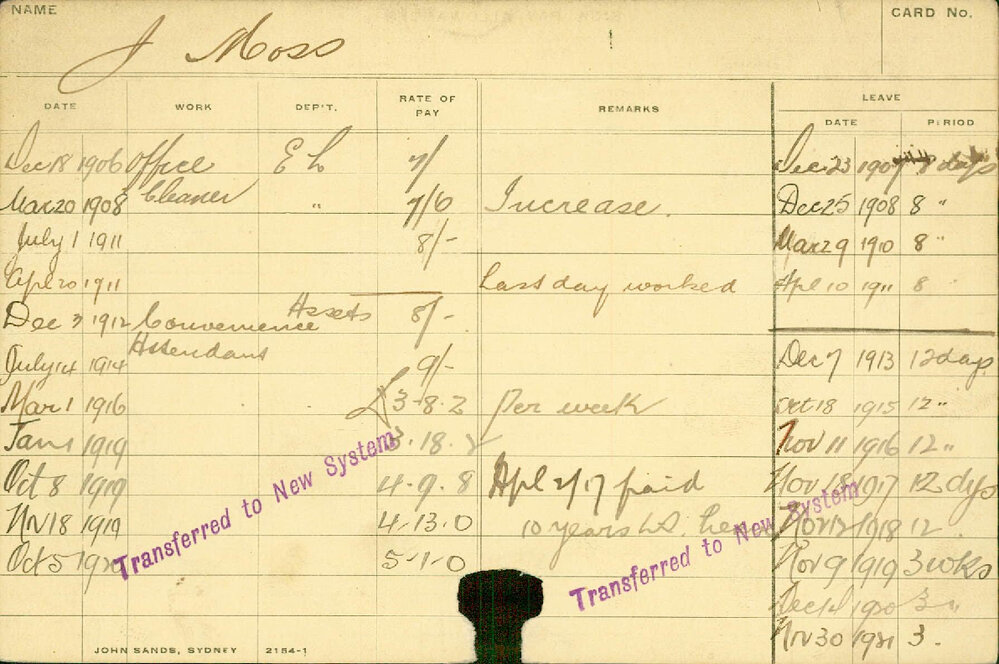 NAME
CARD No.
J Moss
DATE WORK DEP'T. RATE OF PAY REMARKS LEAVE
DATE PERIOD
Dec 18 1906 Office E L 7/ Dec 23 1907 8 days
Mar 20 1908 Cleaner " 7/6 Increase. Dec 25 1908 8 "
July 1 1911 8/- Mar 29 1910 8 "
Apl 20 1911 Last day worked Apl 10 1911 8 "
Dec 3 1912 Convenience Assets 8/-
July 14 1914 Attendant 9/- Dec 7 1913 12 days
Mar 1 1916 £3-8-2 per week Oct 18 1915 12 "
Jan 1 1919 3-18-2 Nov 11 1916 12 "
Oct 8 1919 4-9-8 Apl 2/17 paid Nov 18 1917 12 dys
Nv 18 1919 4-13-0 10 years Nov 12 1918 12
Oct 5 1920 5-1-0 Nov 9 1919 3 wks
Dec 14 1920 3 "
Nv 30 1921 3.
Transferred to New System
Transferred to New System
JOHN SANDS, SYDNEY 2154-1